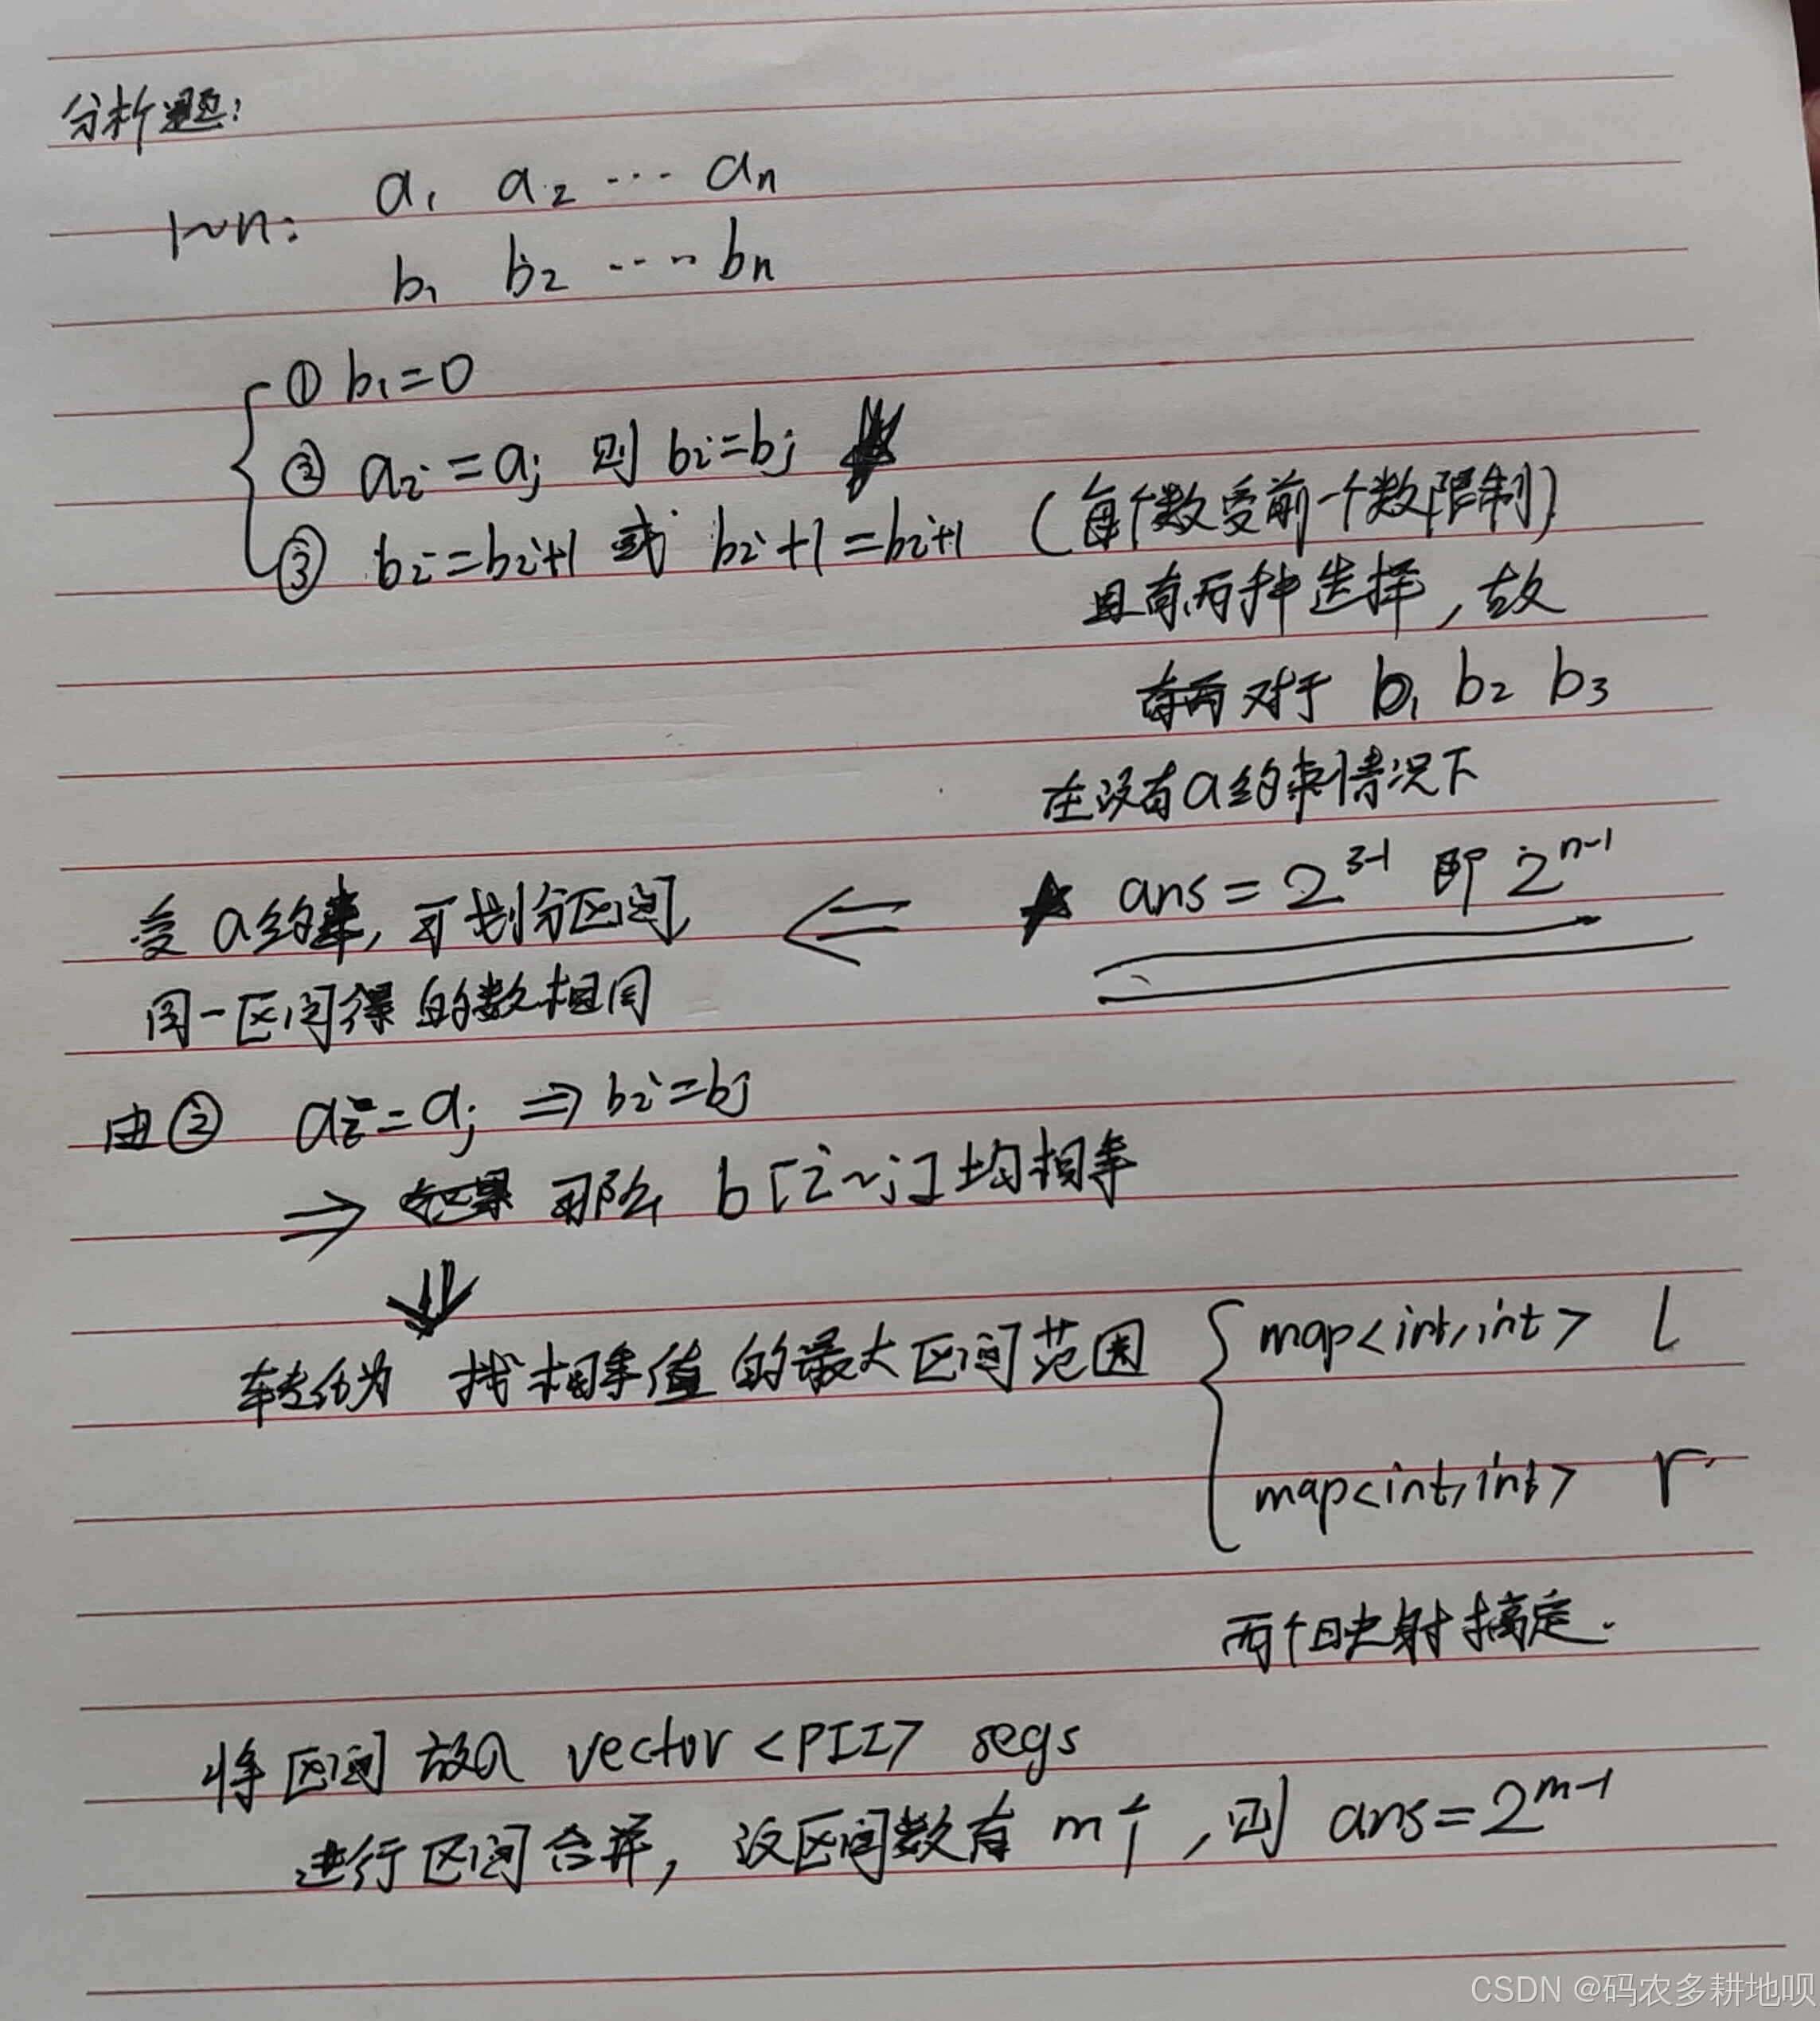 分析题:
1~n: a₁ a₂ … an
b₁ b₂ …… bn
① b₁=0
② ai=aj 则 bi=bj
③ bi=bi+1 或 bi+1=bi+1 (每个数受前一个数限制)
且有两种选择,故
对于 b₁ b₂ b₃
在没有a约束情况下
受a约束,可划分区间 ⇐ ★ ans=2³⁻¹ 即 2ⁿ⁻¹
同一区间得的数相同
由② ai=aj ⇒ bi=bj
⇒ 那么 b[i~j]均相等
⇓
转化为 找相等值的最大区间范围 { map<int,int> l
map<int,int> r
两个映射搞定.
将区间放入 vector<PII> segs
进行区间合并,设区间数有m个,则 ans=2ᵐ⁻¹
CSDN @码农多耕地呗